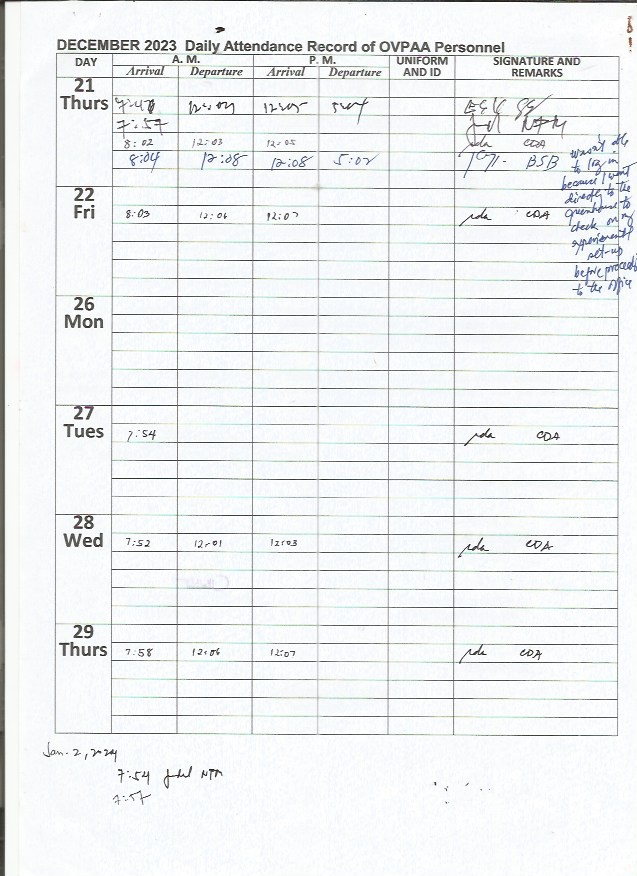 DECEMBER 2023 Daily Attendance Record of OVPAA Personnel
DAY A. M. P. M. UNIFORM AND ID SIGNATURE AND REMARKS
Arrival Departure Arrival Departure
21 Thurs
12:05
7:57 NFM
8:02 12:03 12:05 CDA
8:04 12:08 12:08 5:02 BSB
wasn't able
to log in
because I went
directly to the
greenhouse to
check on my
experiment
set-up
before proceeding
to the office
22 Fri
8:03 12:06 12:07 CDA
26 Mon
27 Tues
7:54 CDA
28 Wed
7:52 12:01 12:03 CDA
29 Thurs
7:58 12:06 12:07 CDA
Jan. 2, 2024
7:54
7:57